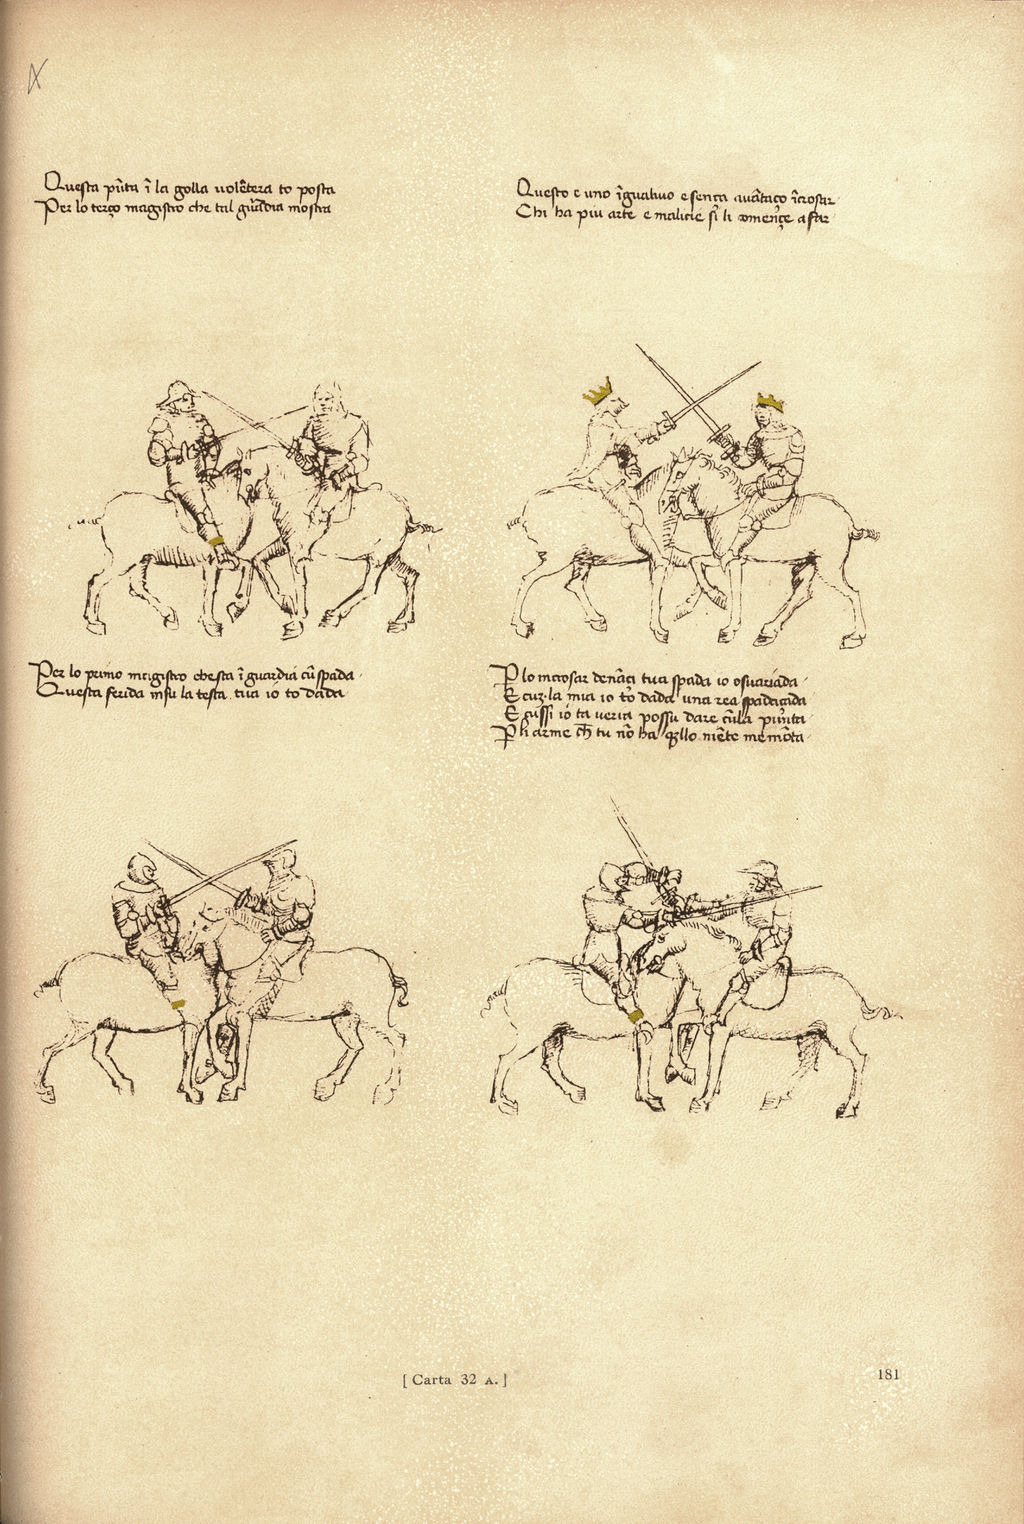 Questa pūta ī la golla volētera to posta
Per lo terço magistro che tal guardia mostra
Questo e uno īgualivo e sença avātaço īcrosar
Chi ha piu arte e malicie si li començe a far
Per lo primo magistro che sta ī guardia cū spada
Questa ferida in su la testa tua io to dada
P lo incrosar denāçi tua spada io o svariada
E cuz la mia io tō dada una rea spadaçada
E cussi io ta veria possu dare cūla punta
P li arme ch tu nō ha qllo niēte me mōta
[ Carta 32 A. ]
181